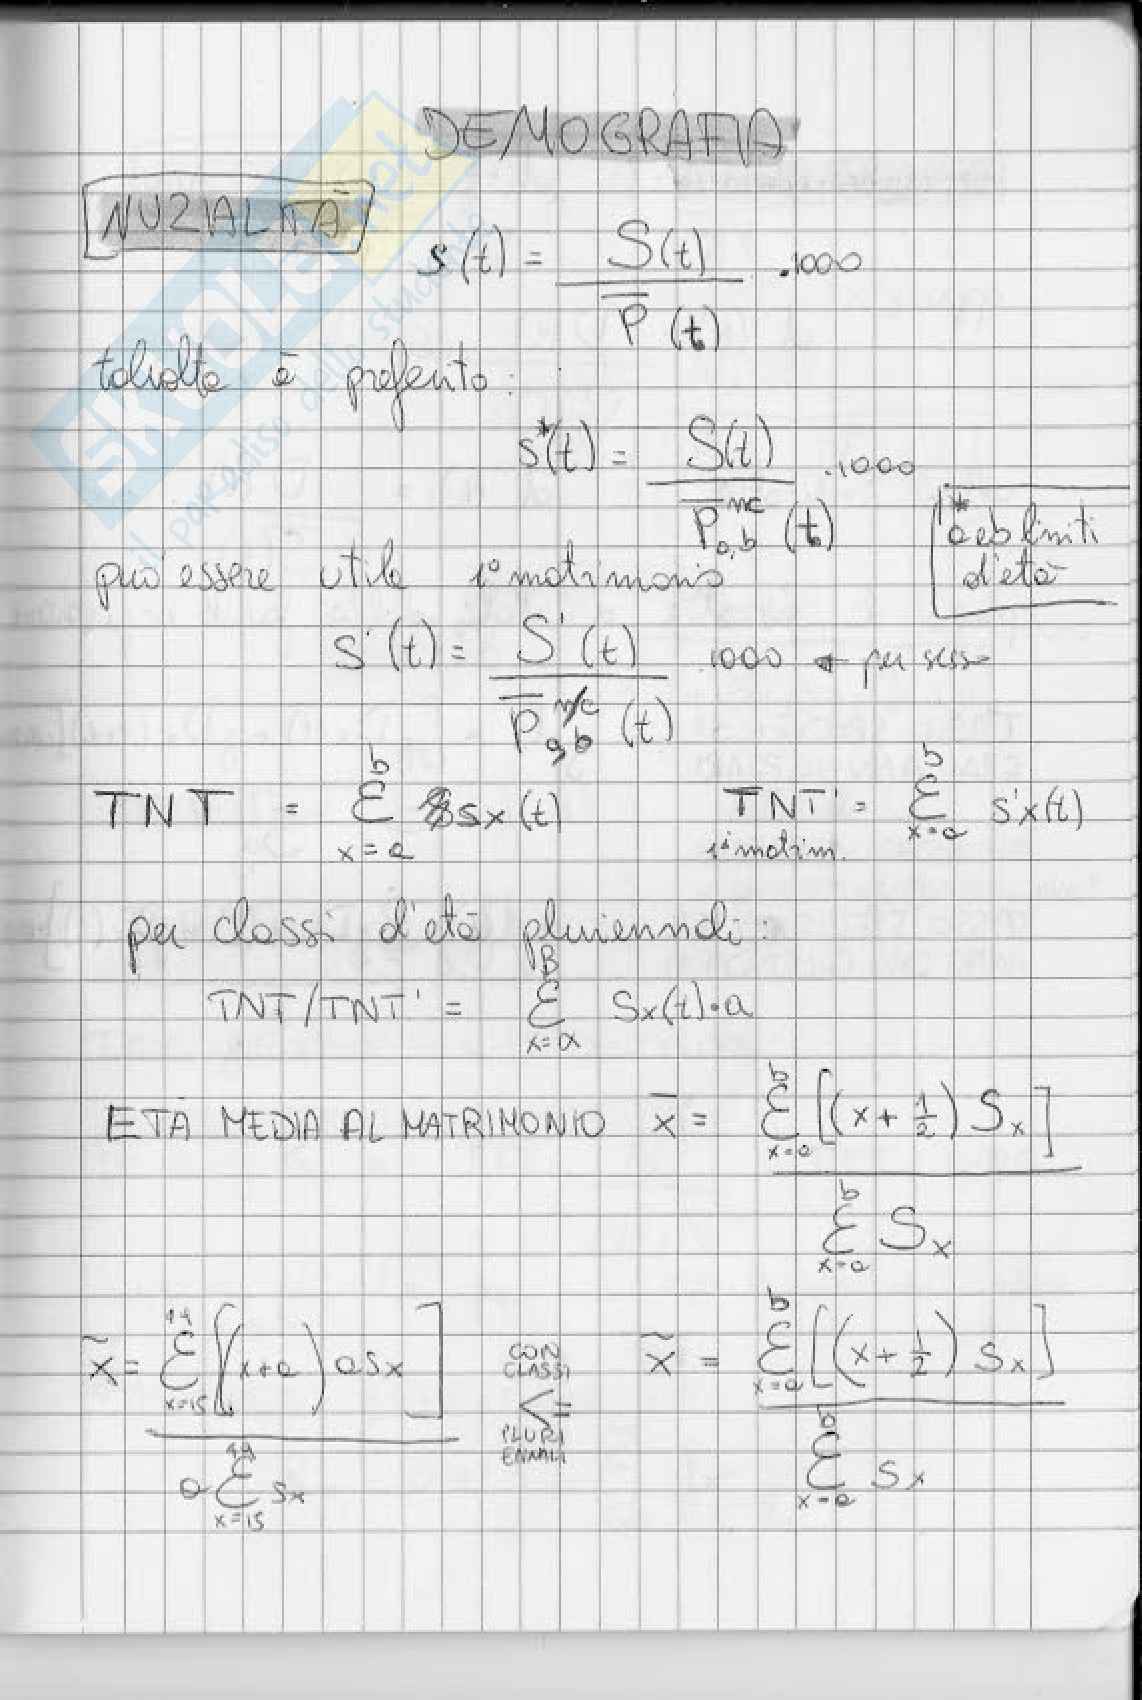 DEMOGRAFIA
NUZIALITÀ
s(t) = S(t) / P̅(t) .1000
talvolta è preferito:
s*(t) = S(t) / P̅ᵃ,ᵇ nc (t) .1000
* a e b limiti d'età
può essere utile 1° matrimonio
s'(t) = S'(t) / P̅a,b n/c (t) .1000 ← per sesso
TNT = Σ x=a b sx(t) TNT' = Σ x=a b s'x(t)
1° matrim.
per classi d'età pluriennali:
TNT/TNT' = Σ x=α B Sx(t)·a
ETÀ MEDIA AL MATRIMONIO x̅ = Σ x=a b [(x + 1/2) Sx] / Σ x=a b Sx
x̃ = Σ x=15 [(x+a) asx] / a Σ x=15 sx
CON CLASSI PLURIENNALI <=
x̃ = Σ x=a b [(x + 1/2) sx] / Σ x=a b sx
SKUOLA.net
il paradiso dello studente